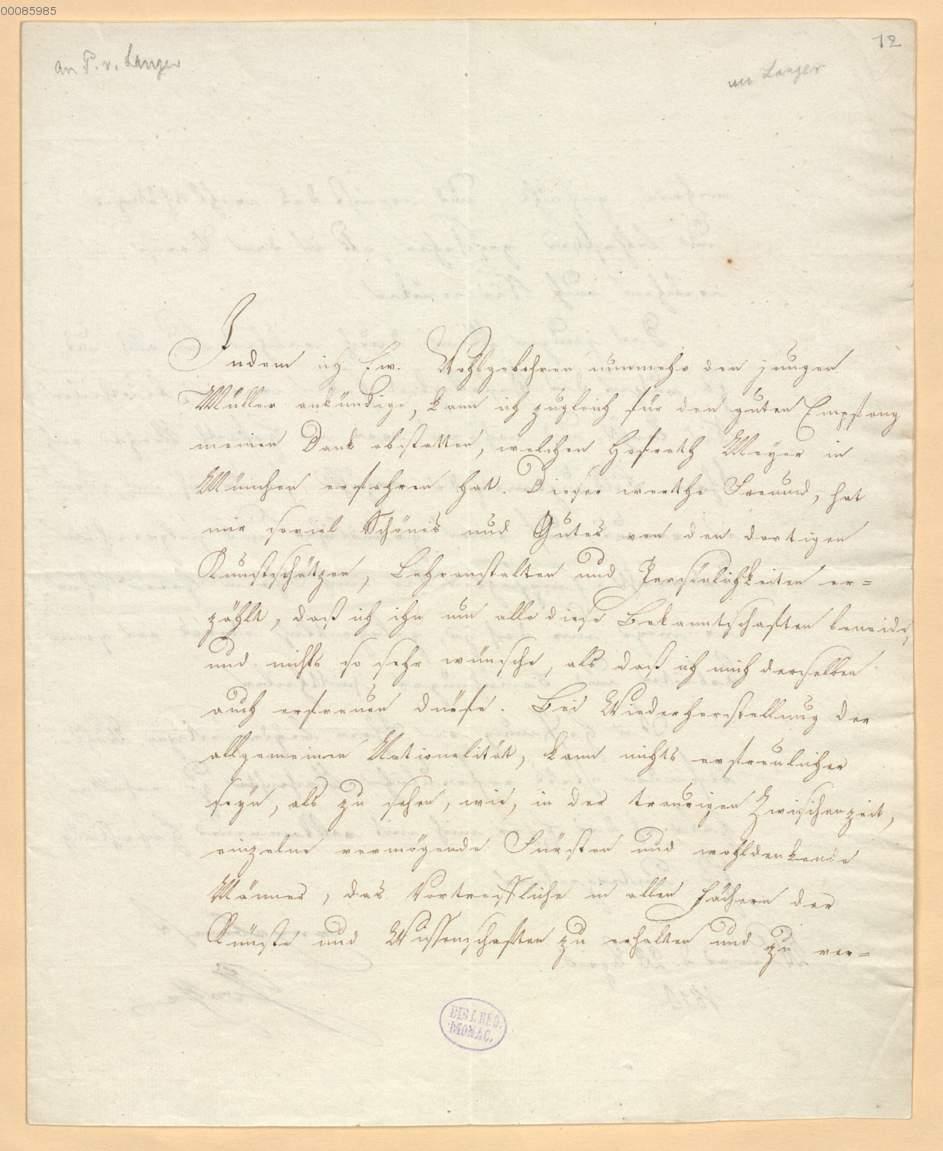 00085985
12
an P. v. Langer
an Langer
Indem ich Ew. Wohlgebohren nunmehr den jungen
Müller ankündige, kann ich zugleich für den guten Empfang
meinen Dank abstatten, welchen Hofrath Meyer in
München erfahren hat. Dieser werthe Freund, hat
mir soviel Schönes und Gutes von den dortigen
Kunstschätzen, Lehranstalten und Persönlichkeiten er=
zählt, daß ich ihn um alle diese Bekanntschaften beneide,
und nichts so sehr wünsche, als daß ich mich derselben
auch erfreuen dürfe. Bei Wiederherstellung der
allgemeinen Nationalität, kann nichts erfreulicher
seyn, als zu sehen, wie, in der traurigen Zwischenzeit,
einzelne vermögende Fürsten und wohldenkende
Männer, das Vortreffliche in allen Fächern der
Künste und Wissenschaften zu erhalten und zu ver=
BIBL. REG.
MONAC.